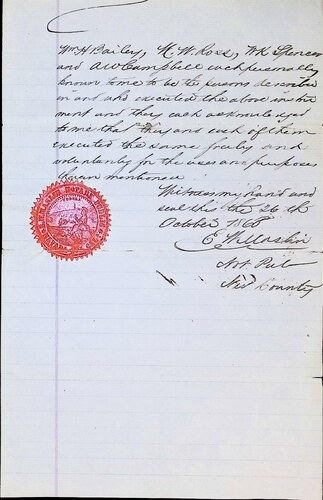 Wm H Bailey, M. W. Ross, W K Spencer
and A W Campbell each personally
known to me to be the persons described
in and who executed the above instru
ment and they each acknowledged
to me that they and each of them
executed the same freely and
voluntarily for the uses and purposes
therein mentioned
Witness my hand and
seal this the 26th
October 186
Not Pub
County